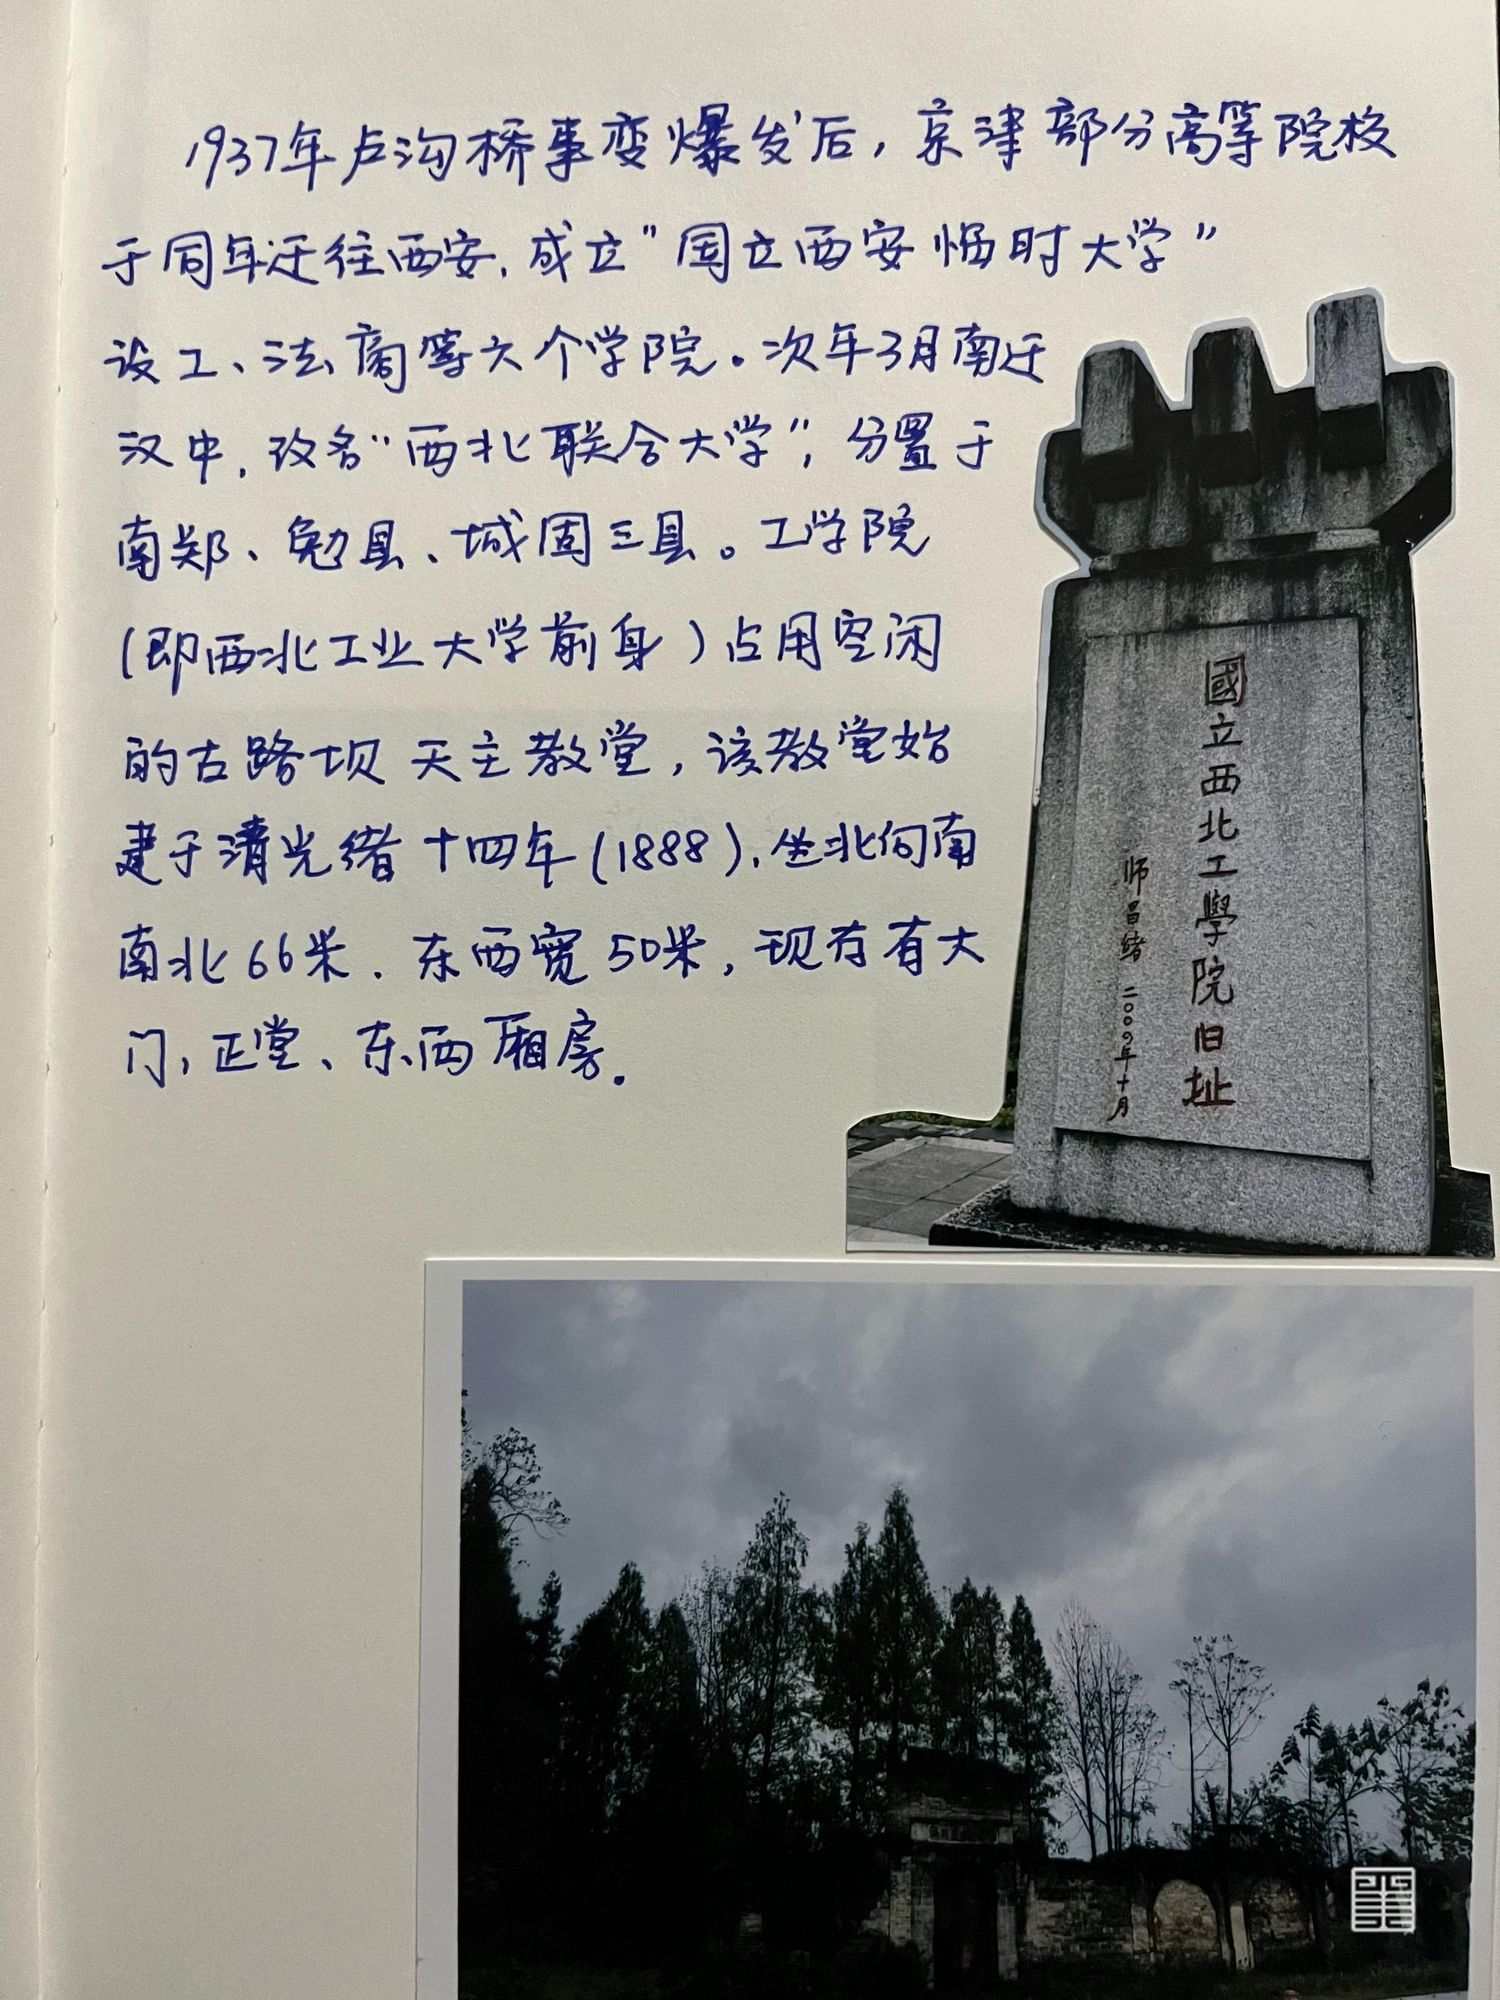 1937年卢沟桥事变爆发后，京津部分高等院校
于同年迁往西安，成立"国立西安临时大学"
设工、法商等六个学院。次年3月南迁
汉中，改名"西北联合大学"，分置于
南郑、勉县、城固三县。工学院
(即西北工业大学前身)占用空闲
的古路坝天主教堂，该教堂始
建于清光绪十四年(1888)，坐北向南
南北66米、东西宽50米，现存有大
门，正堂、东西厢房。
國立西北工學院旧址
师昌绪 二〇〇九年十月